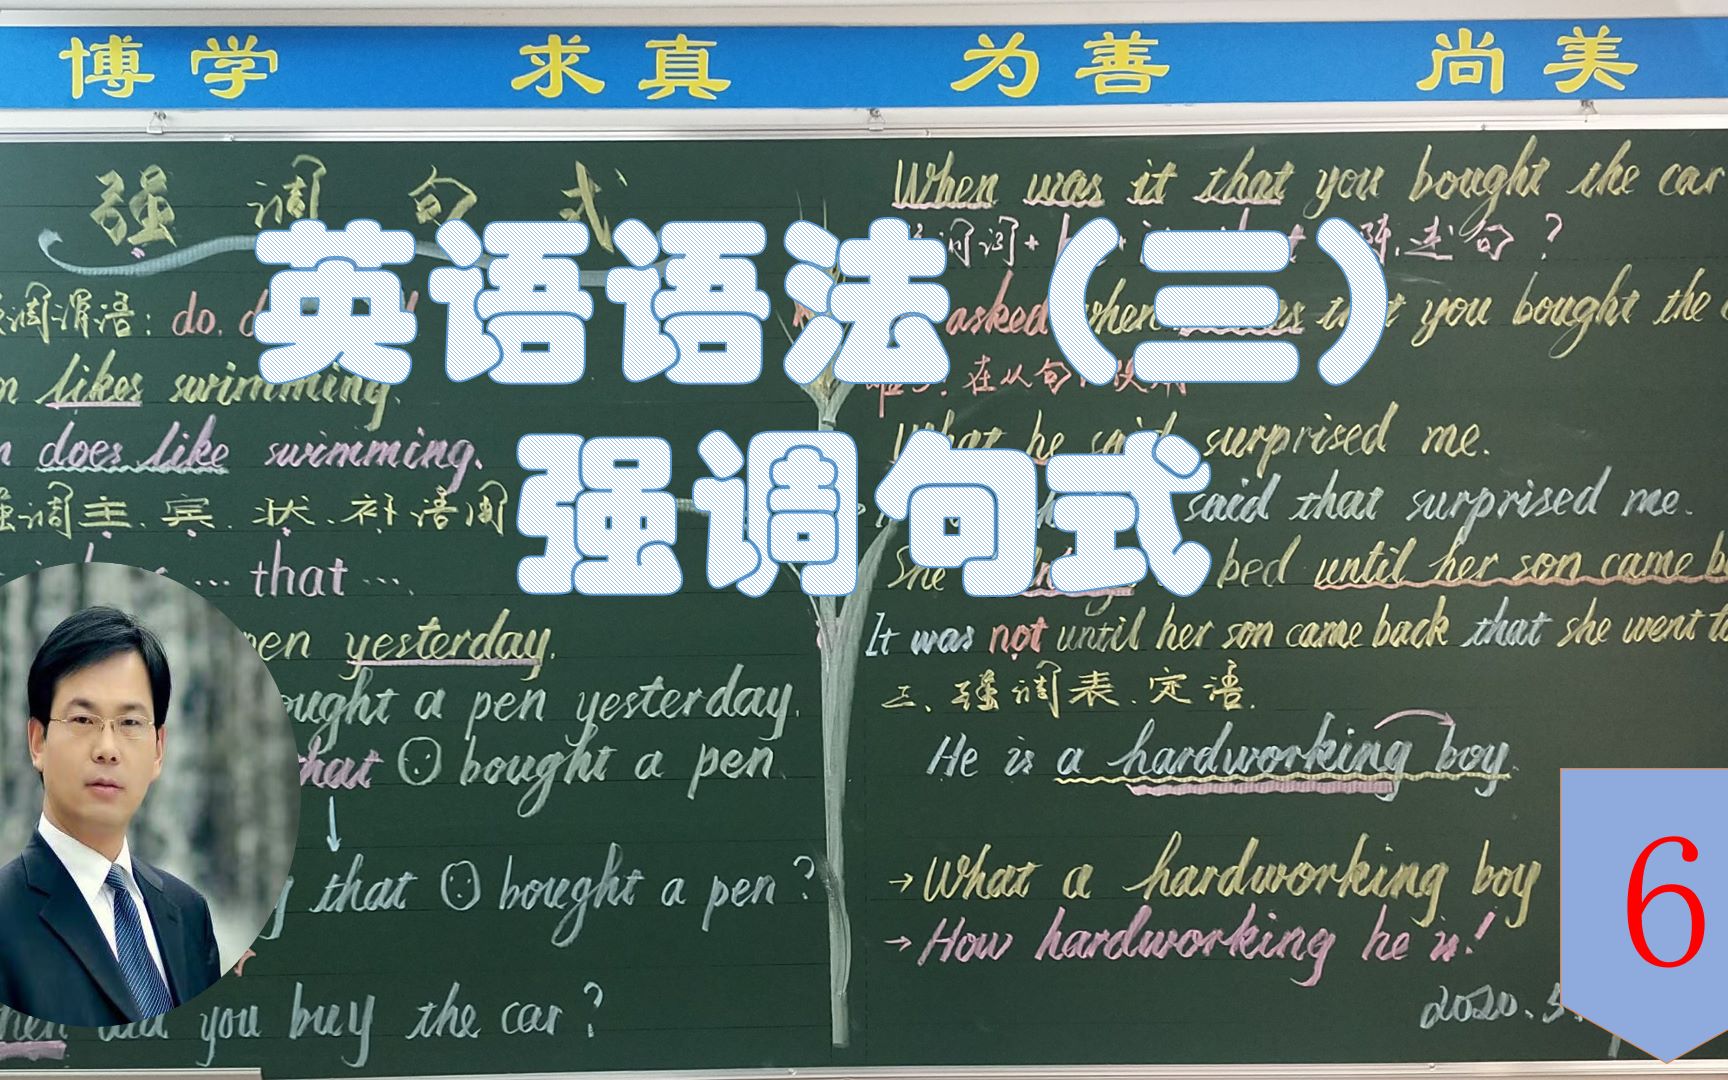 博学 求真 为善 尚美
强调句式
英语语法（三）
强调句式
调谓语: do. d
likes swimming.
does like swimming.
强调主、宾、状、补语用
... that ...
pen yesterday.
ought a pen yesterday.
that bought a pen.
that bought a pen?
you buy the car?
When was it that you bought the car
问词+ 陈述句?
asked when that you bought the
在从句
What he said surprised me.
said that surprised me.
She bed until her son came b
It was not until her son came back that she went t
三、强调表、定语.
He is a hardworking boy.
→What a hardworking boy
→How hardworking he is!
2020.5.
6